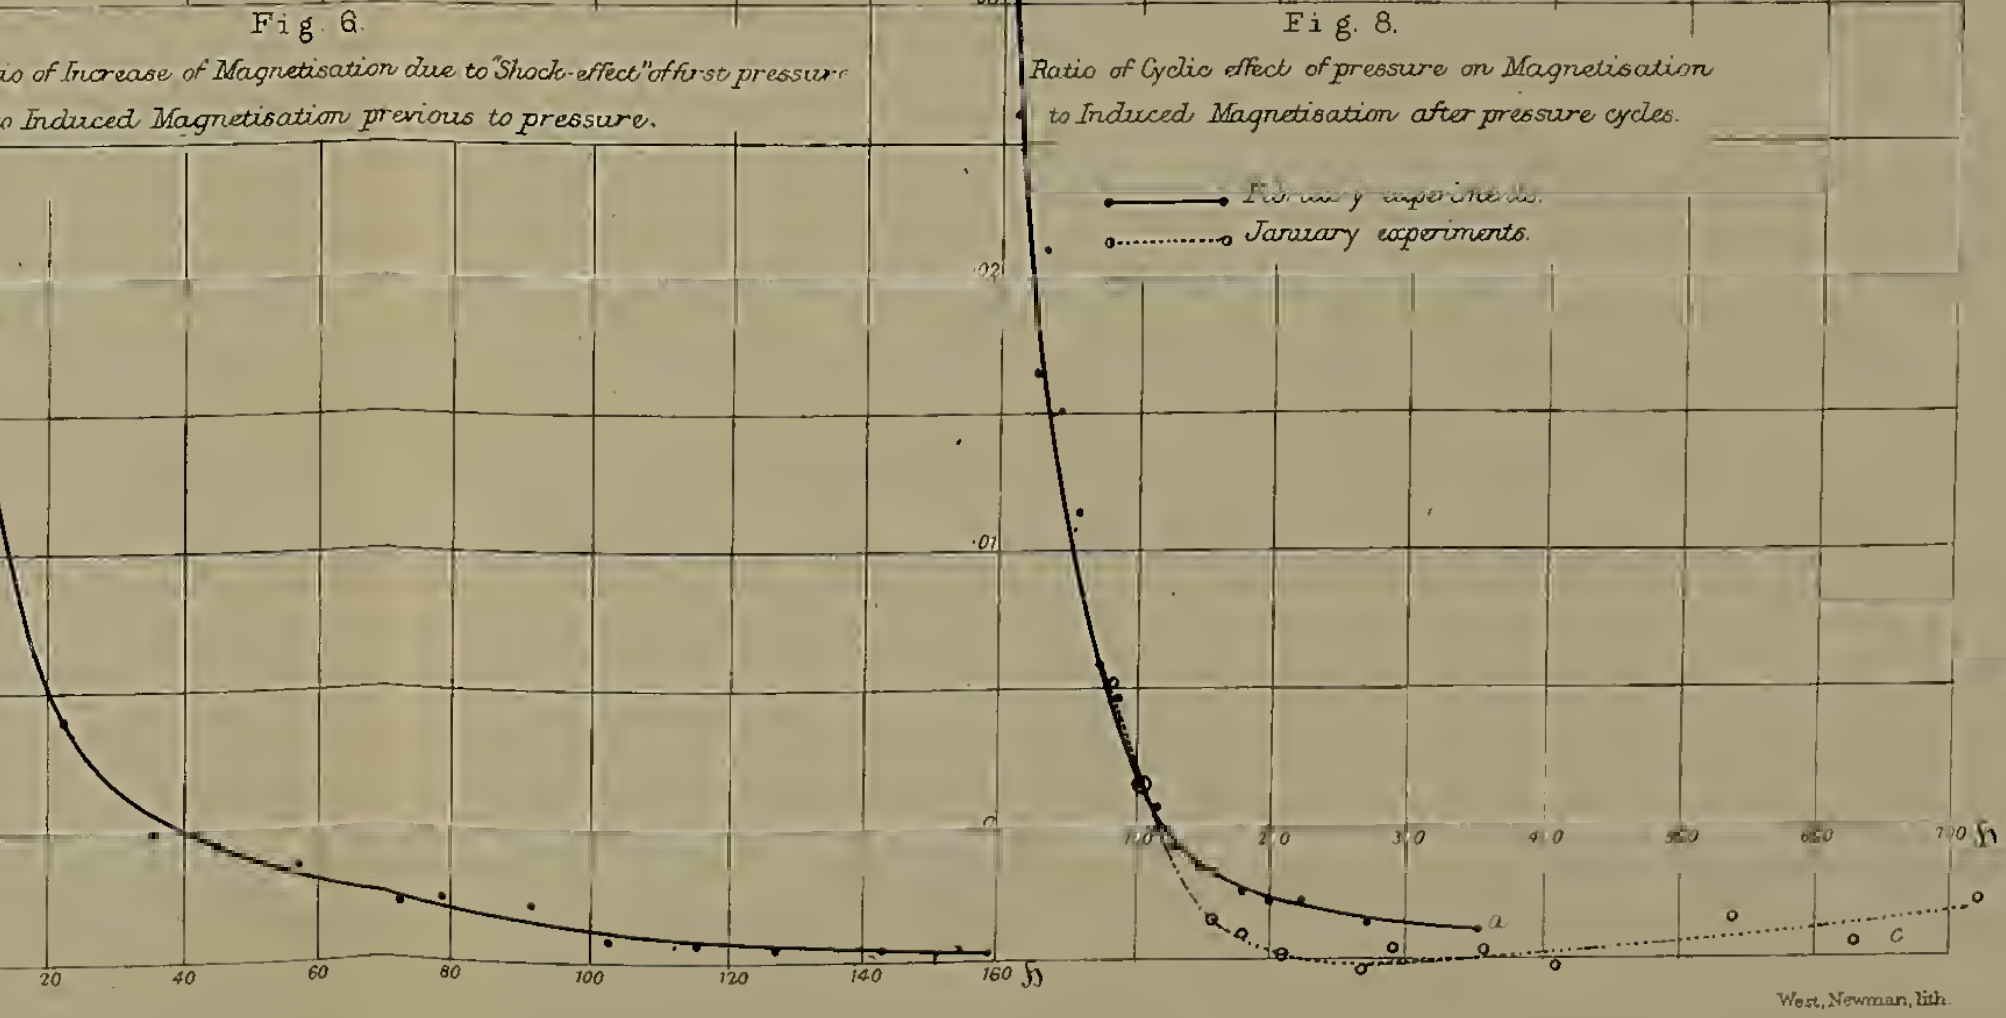 Fig. 6.
io of Increase of Magnetisation due to "Shock-effect" of first pressure
o Induced Magnetisation previous to pressure.
Fig. 8.
Ratio of Cyclic effect of pressure on Magnetisation
to Induced Magnetisation after pressure cycles.
February experiments.
January experiments.
·02
·01
0
100 200 300 400 500 600 700 ℌ
a
c
20 40 60 80 100 120 140 160 ℌ
West, Newman, lith.